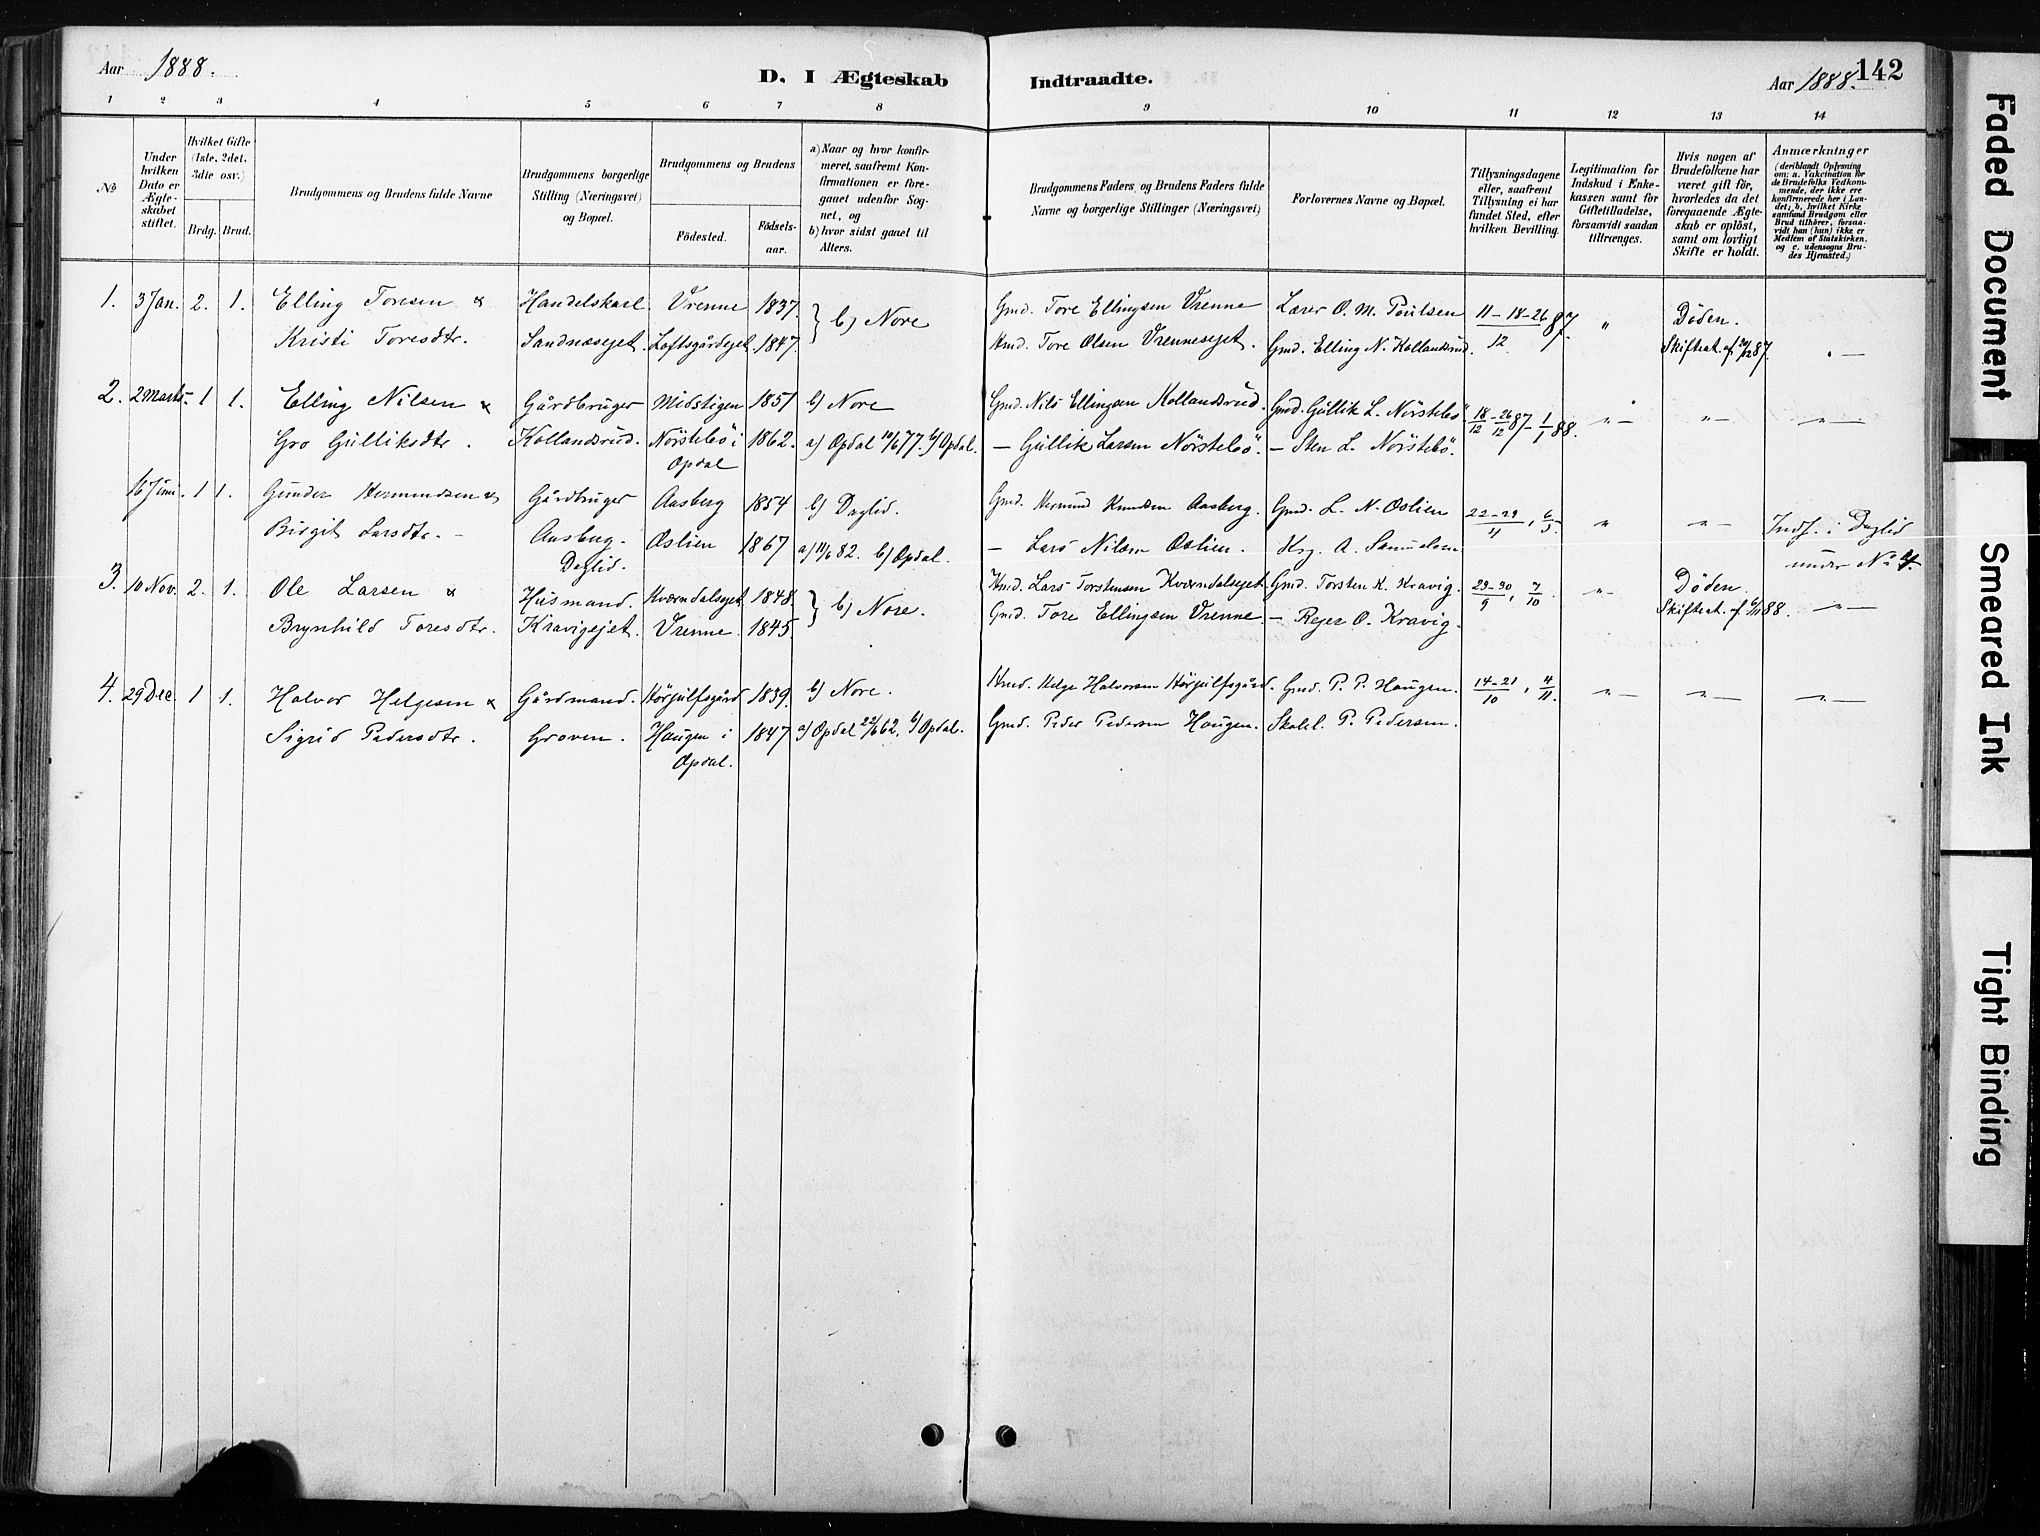 Aar 1888.
D. I Ægteskab
Indtraadte.
Aar 1888.
142
1 2 3 4 5 6 7 8 9 10 11 12 13 14
No
Under hvilken Dato er Ægteskabet stiftet.
Hvilket Gifte (1ste, 2det, 3die osv.)
Brdg. Brud.
Brudgommens og Brudens fulde Navne
Brudgommens borgerlige Stilling (Næringsvei) og Bopæl.
Brudgommens og Brudens
Fødested.
Fødsels-aar.
a) Naar og hvor konfirmeret, saafremt Konfirmationen er foregaaet udenfor Sognet, og
b) hvor sidst gaaet til Alters.
Brudgommens Faders og Brudens Faders fulde Navne og borgerlige Stillinger (Næringsvei)
Forlovernes Navne og Bopæl.
Tillysningsdagene eller, saafremt Tillysning ei har fundet Sted, efter hvilken Bevilling.
Legitimation for Indskud i Enkekassen samt for Giftetilladelse, forsaavidt saadan tiltrænges.
Hvis nogen af Brudefolkene har været gift før, hvorledes da det foregaaende Ægteskab er opløst, samt om lovligt Skifte er holdt.
Anmærkninger
(deriblandt Oplysning om: a. Vakcination for de Brudefolks Vedkommende, der ikke ere konfirmerede her i Landet; b. hvilket Kirkesamfund Brudgom eller Brud tilhører, forsaavidt han (hun) ikke er Medlem af Statskirken, og c. udensogns Brudes Hjemsted.)
1. 3 Jan. 2. 1. Elling Toresen & Handelskarl Vrenne 1837. } b) Nore Gmd. Tore Ellingsen Vrenne Lærer O. M. Poulsen 11-18-26/12 87. " Døden.
Kristi Toresdtr. Sandnæsejet. Loftsgårdejet. 1847. Hmd. Tore Olsen Vrenneejet. Gmd. Elling N. Kollandsrud. Skifteat. af 24/12 87. "—
2. 2 Marts. 1 1. Elling Nilsen & Gårdbruger Midstigen 1851 b) Nore Gmd. Nils Ellingsen Kollandsrud. Gmd. Gullik L. Nørstebø 18/12-26/12 87-1/1 88. "— "— "—
Gro Gulliksdtr. Kollandsrud. Nørstebø i 1862. a) Opdal 10/6 77. b) Opdal. — Gullik Larsen Nørstebø. — Sten L. Nørstebø.
Opdal
16 Juni. 1 1. Gunder Hermundsen & Gårdbruger Aasberg 1854 b) Daglid. Gmd. Hermund Knudsen Aasberg. Gmd. L. N. Oslien 22-29/4, 6/5. " "— Indf. i Daglid
Birgit Larsdtr. — Aasberg. Oslien 1867 a) 11/6 82. b) Opdal. — Lars Nilsen Oslien. Ksg. A. Samuelsen under No 4.
Daglid.
3. 10 Nov. 2. 1. Ole Larsen & Husmand. Kværndalsejet 1848. } b) Nore. Hmd. Lars Torstensen Kværndalsejet. Gmd. Torsten K. Kravig. 23-30/9, 7/10. "— Døden.
Brynhild Toresdtr. Kravigejet. Vrenne. 1845. Gmd. Tore Ellingsen Vrenne. — Rejer O. Kravig. Skifteat. af 6/11 88. "—
4. 29 Dec. 1 1. Halvor Helgesen & Gårdmand. Hørjulfsgård 1839. b) Nore. Hmd. Helge Halvorsen Hørjulfsgård. Gmd. P. P. Haugen. 14-21/10, 4/11. "— "— "—
Sigrid Pedersdtr. Groven. Haugen i 1847 a) Opdal 22/6 62. b) Opdal. Gmd. Peder Pedersen Haugen. Skolel. P. Pedersen.
Opdal.
Faded Document
Smeared Ink
Tight Binding